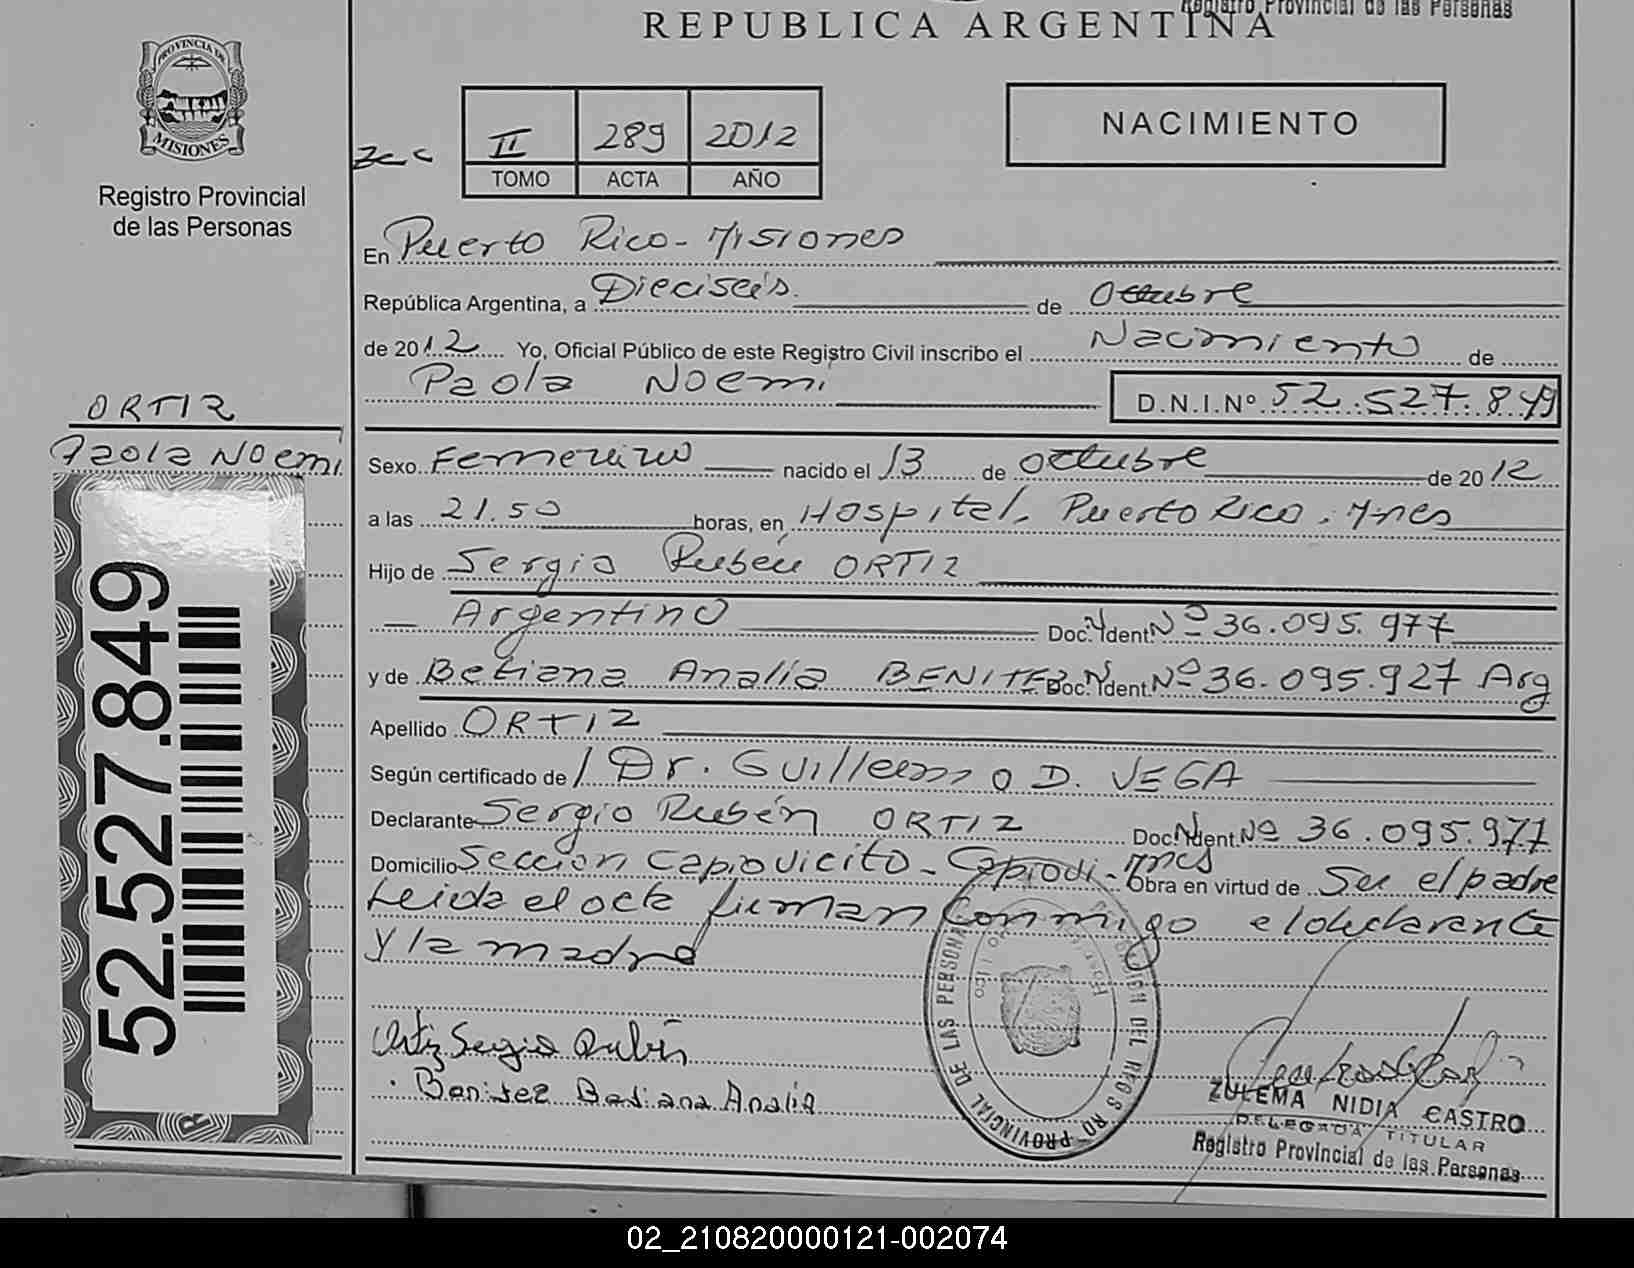 Registro Provincial de las Personas
REPUBLICA ARGENTINA
PROVINCIA DE
MISIONES
Registro Provincial
de las Personas
II 289 2012
TOMO ACTA AÑO
NACIMIENTO
En Puerto Rico - Misiones
República Argentina, a Dieciseis de Octubre
de 2012 Yo, Oficial Público de este Registro Civil inscribo el Nacimiento de
Paola Noemi
D.N.I.Nº 52.527.849
ORTIZ
Paola Noemi
Sexo Femenino nacido el 13 de Octubre de 2012
a las 21.50 horas, en Hospital. Puerto Rico. Mnes
Hijo de Sergio Rubén ORTIZ
Argentino Doc. Ident. Nº 36.095.977
y de Betiana Analía BENITEZ Doc. Ident. Nº 36.095.927 Arg
Apellido ORTIZ
Según certificado de Dr. Guillermo D. VEGA
Declarante Sergio Rubén ORTIZ Doc. Ident. Nº 36.095.977
Domicilio Seccion Capiovicito - Capiovi - Mnes Obra en virtud de Ser el padre
Leida el acta firman Conmigo el declarante
y la madre
52.527.849
Ortiz Sergio Rubén
Benitez Betiana Analía
PROVINCIAL DE LAS PERSONAS
ZULEMA NIDIA CASTRO
DELEGADA TITULAR
Registro Provincial de las Personas
02_210820000121-002074